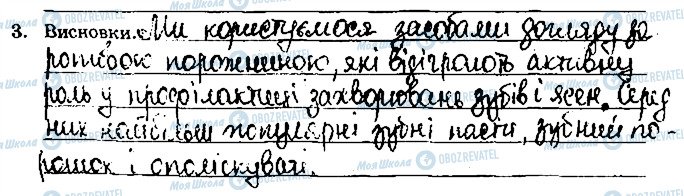 3. Висновки. Ми користуємося засобами догляду за
ротовою порожниною, які відіграють активну
роль у профілактиці захворювань зубів і ясен. Серед
них найбільш популярні зубні пасти, зубний по-
рошок і ополіскувачі.